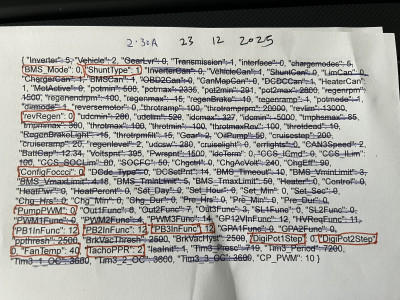 2.30A 23 12 2025
{ "Inverter": 5, "Vehicle": 2, "GearLvr": 0, "Transmission": 1, "interface": 0, "chargemodes": 5,
"BMS_Mode": 0, "ShuntType": 1, "InverterCan": 0, "VehicleCan": 1, "ShuntCan": 0, "LimCan": 0,
"ChargerCan": 1, "BMSCan": 1, "OBD2Can": 0, "CanMapCan": 0, "DCDCCan": 1, "HeaterCan":
1, "MotActive": 0, "potmin": 500, "potmax": 2335, "pot2min": 291, "pot2max": 2800, "regenrpm":
1500, "regenendrpm": 100, "regenmax": -15, "regenBrake": -10, "regenramp": 1, "potmode": 1,
"dirmode": 1, "reversemotor": 0, "throtramp": 100, "throtramprpm": 20000, "revlim": 13000,
"revRegen": 0, "udcmin": 280, "udclim": 520, "idcmax": 327, "idcmin": -5000, "tmphsmax": 85,
"tmpmmax": 300, "throtmax": 100, "throtmin": -100, "throtmaxRev": 100, "throtdead": 10,
"RegenBrakeLight": -15, "throtrpmfilt": -15, "Gear": 2, "OilPump": 50, "cruisestep": 200,
"cruiseramp": 20, "regenlevel": 2, "udcsw": 280, "cruiselight": 0, "errlights": 0, "CAN3Speed": 2,
"BattCap": 12.34, "Voltspnt": 395, "Pwrspnt": 1500, "IdcTerm": 0, "CCS_ICmd": 0, "CCS_ILim":
100, "CCS_SOCLim": 80, "SOCFC": 80, "Chgctrl": 0, "ChgAcVolt": 240, "ChgEff": 90,
"ConfigFocci": 0, "DCdc_Type": 0, "DCSetPnt": 14, "BMS_Timeout": 10, "BMS_VminLimit": 3,
"BMS_VmaxLimit": 4.18, "BMS_TminLimit": 5, "BMS_TmaxLimit": 50, "Heater": 0, "Control": 0,
"HeatPwr": 0, "HeatPercnt": 0, "Set_Day": 0, "Set_Hour": 0, "Set_Min": 0, "Set_Sec": 0,
"Chg_Hrs": 0, "Chg_Min": 0, "Chg_Dur": 0, "Pre_Hrs": 0, "Pre_Min": 0, "Pre_Dur": 0,
"PumpPWM": 0, "Out1Func": 6, "Out2Func": 3, "Out3Func": 3, "SL1Func": 0, "SL2Func": 0,
"PWM1Func": 0, "PWM2Func": 4, "PWM3Func": 14, "GP12VInFunc": 12, "HVReqFunc": 11,
"PB1InFunc": 12, "PB2InFunc": 12, "PB3InFunc": 12, "GPA1Func": 0, "GPA2Func": 0,
"ppthresh": 2500, "BrkVacThresh": 2500, "BrkVacHyst": 2500, "DigiPot1Step": 0, "DigiPot2Step":
0, "FanTemp": 40, "TachoPPR": 2, "IsaInit": 1, "Tim3_Presc": 719, "Tim3_Period": 7200,
"Tim3_1_OC": 3600, "Tim3_2_OC": 3600, "Tim3_3_OC": 3600, "CP_PWM": 10 }